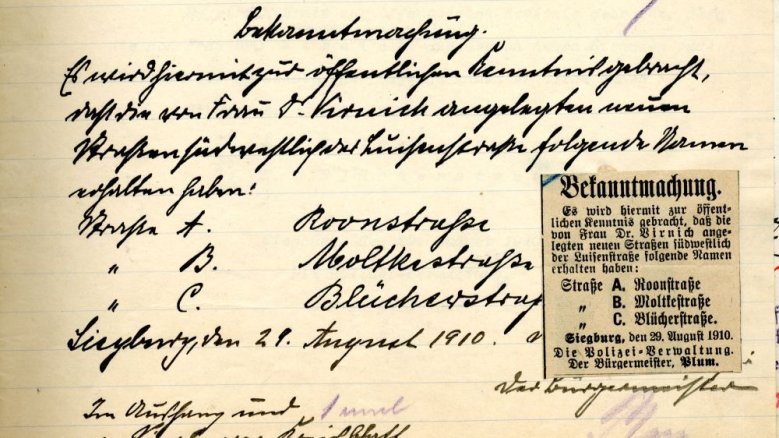 Bekanntmachung.
Es wird hiermit zur öffentlichen Kenntnis gebracht,
daß die von Frau Dr. Virnich angelegten neuen
Straßen südwestlich der Luisenstraße folgende Namen
erhalten haben:
Straße A. Roonstraße
„ B. Moltkestraße
„ C. Blücherstraß
Siegburg, den 29. August 1910.
Der Bürgermeister
Im Aushang und 1 mal
Kreisblatt
Bekanntmachung.
Es wird hiermit zur öffent-
lichen Kenntnis gebracht, daß die
von Frau Dr. Virnich ange-
legten neuen Straßen südwestlich
der Luisenstraße folgende Namen
erhalten haben:
Straße A. Roonstraße
„ B. Moltkestraße
„ C. Blücherstraße.
Siegburg, den 29. August 1910.
Die Polizei-Verwaltung.
Der Bürgermeister, Plum.